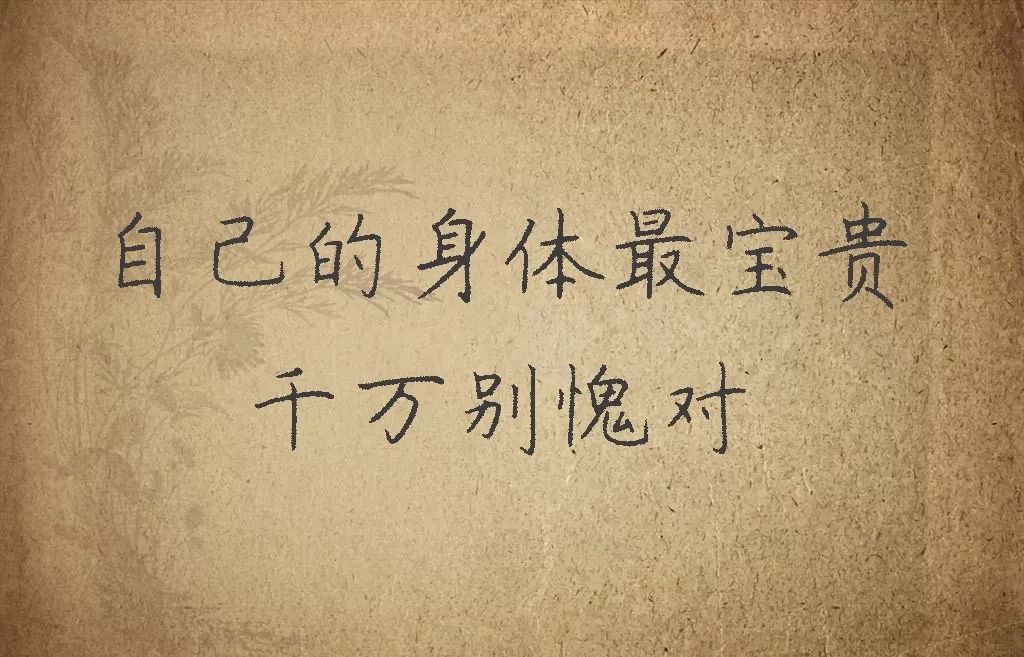 自己的身体最宝贵
千万别愧对